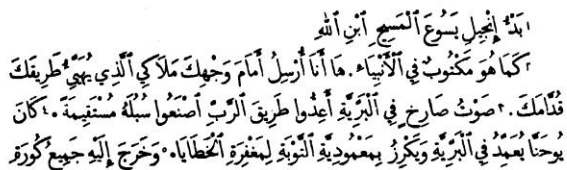 ١ بَدْءُ إِنْجِيلِ يَسُوعَ ٱلْمَسِيحِ ٱبْنِ ٱللهِ
٢ كَمَا هُوَ مَكْتُوبٌ فِي ٱلْأَنْبِيَاءِ. هَا أَنَا أُرْسِلُ أَمَامَ وَجْهِكَ مَلَاكِي ٱلَّذِي يُهَيِّئُ طَرِيقَكَ
قُدَّامَكَ. ٣ صَوْتُ صَارِخٍ فِي ٱلْبَرِّيَّةِ أَعِدُّوا طَرِيقَ ٱلرَّبِّ ٱصْنَعُوا سُبُلَهُ مُسْتَقِيمَةً. ٤ كَانَ
يُوحَنَّا يُعَمِّدُ فِي ٱلْبَرِّيَّةِ وَيَكْرِزُ بِمَعْمُودِيَّةِ ٱلتَّوْبَةِ لِمَغْفِرَةِ ٱلْخَطَايَا. ٥ وَخَرَجَ إِلَيْهِ جَمِيعُ كُورَةِ